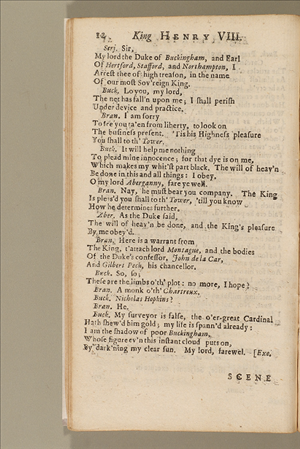 12 King HENRY VIII.
Serj. Sir,
My lord the Duke of Buckingham, and Earl
Of Hertford, Stafford, and Northampton, I
Arrest thee of high treason, in the name
Of our most Sov'reign King.
Buck. Lo you, my lord,
The net has fall'n upon me; I shall perish
Under device and practice.
Bran. I am sorry
To see you ta'en from liberty, to look on
The business present. 'Tis his Highness pleasure
You shall to th' Tower.
Buck. It will help me nothing
To plead mine innocence; for that dye is on me,
Which makes my whit'st part black. The will of heav'n
Be done in this and all things: I obey.
O my lord Aberganny, fare ye well.
Bran. Nay, he must bear you company. The King
Is pleas'd you shall to th' Tower, 'till you know
How he determines further.
Aber. As the Duke said,
The will of heav'n be done, and the King's pleasure
By me obey'd.
Bran. Here is a warrant from
The King, t'attach lord Montague, and the bodies
Of the Duke's confessor, John de la Car,
And Gilbert Peck, his chancellor.
Buck. So, so;
These are the limbs o'th' plot: no more, I hope?
Bran. A monk o'th' Chartreux.
Buck. Nicholas Hopkins?
Bran. He.
Buck. My surveyor is false, the o'er-great Cardinal
Hath shew'd him gold; my life is spann'd already:
I am the shadow of poor Buckingham,
Whose figure ev'n this instant cloud puts on,
By dark'ning my clear sun. My lord, farewel. [Exe.
SCENE